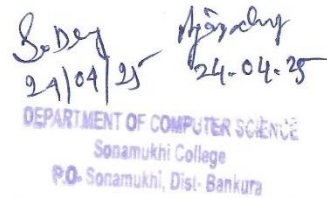 S. Dey
24/04/25 24-04-25
DEPARTMENT OF COMPUTER SCIENCE
Sonamukhi College
P.O- Sonamukhi, Dist- Bankura